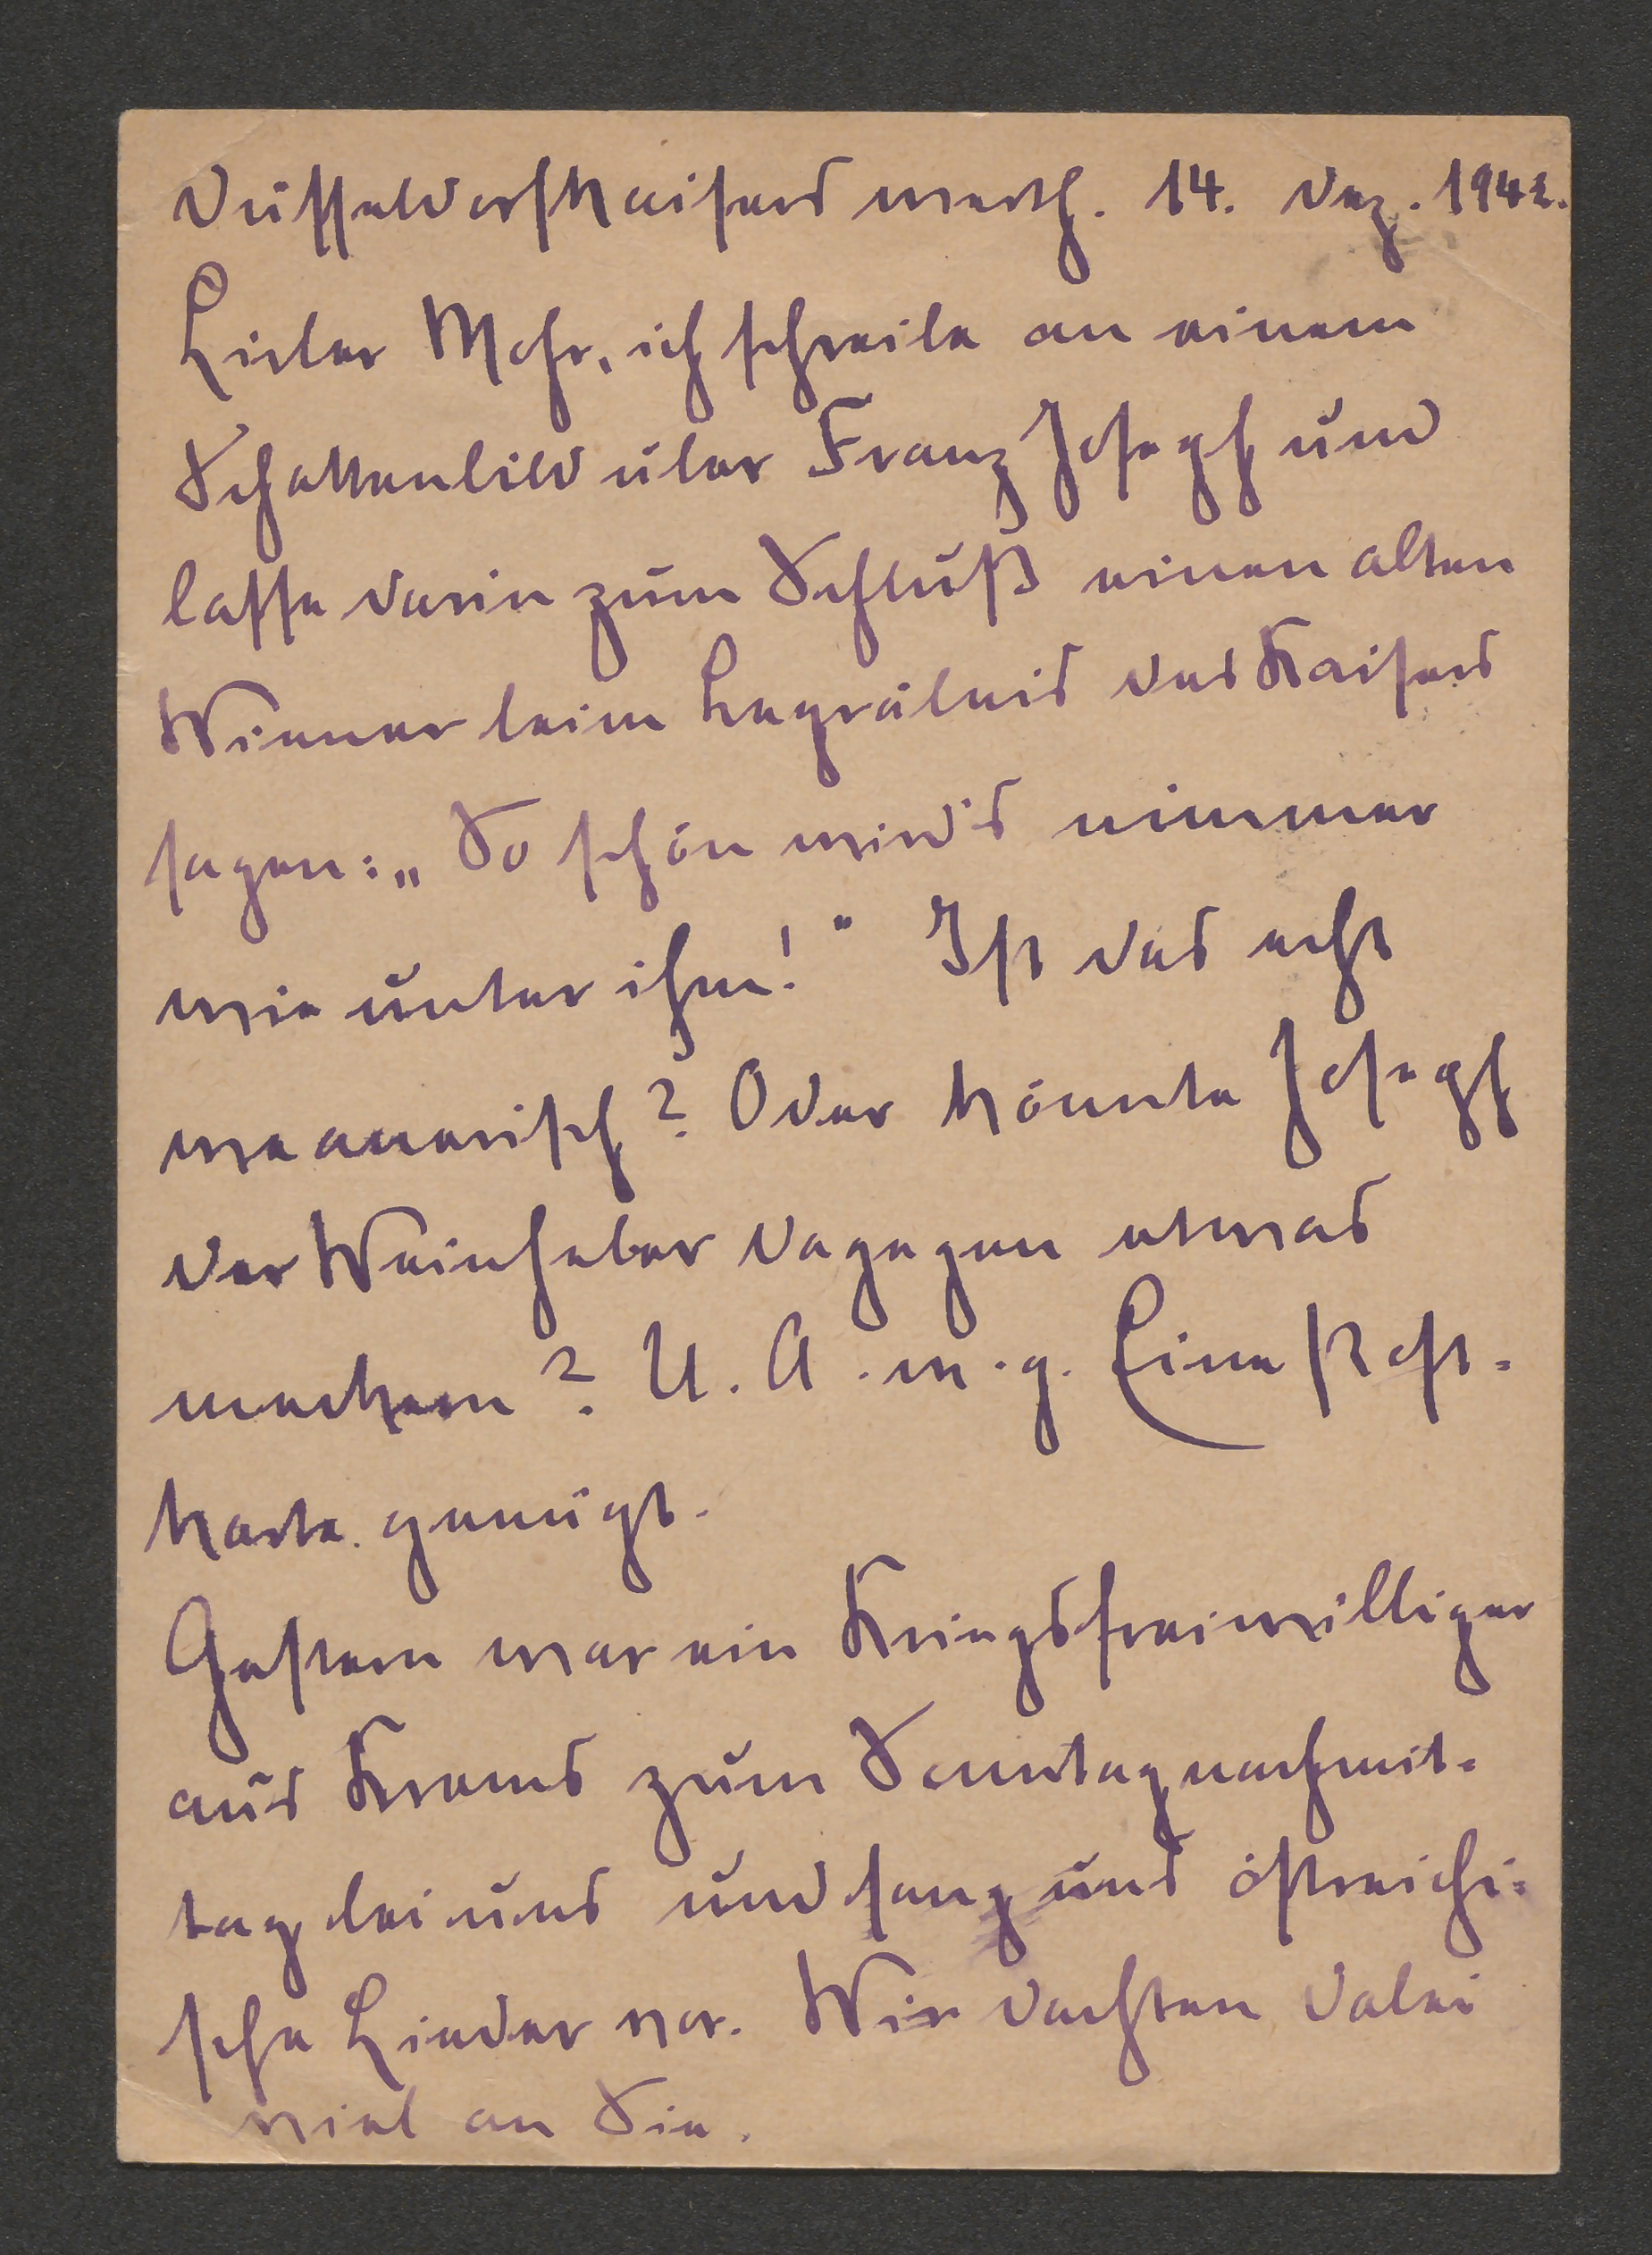 Düsseldorfkaiserswerth. 14. Dez. 1942.
Lieber Mohr, ich schreibe an einem
Schattenbild über Franz Joseph und
lasse darin zum Schluß einen alten
Wiener beim Begräbnis des Kaisers
sagen: „So schön wird's nimmer
wie unter ihm!" Ist das echt
weanerisch? Oder könnte Joseph
der Weinheber dagegen etwas
meckern? U. A. w. g. Eine Post-
karte genügt.
Gestern war ein Kriegsfreiwilliger
aus Krems zum Sonntagnachmit-
tag bei uns und sang uns östreichi-
sche Lieder vor. Wir dachten dabei
viel an Sie.